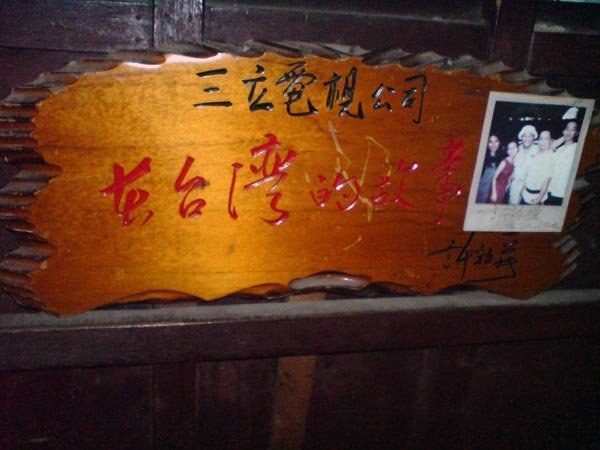 三立電視公司
在台湾的故事